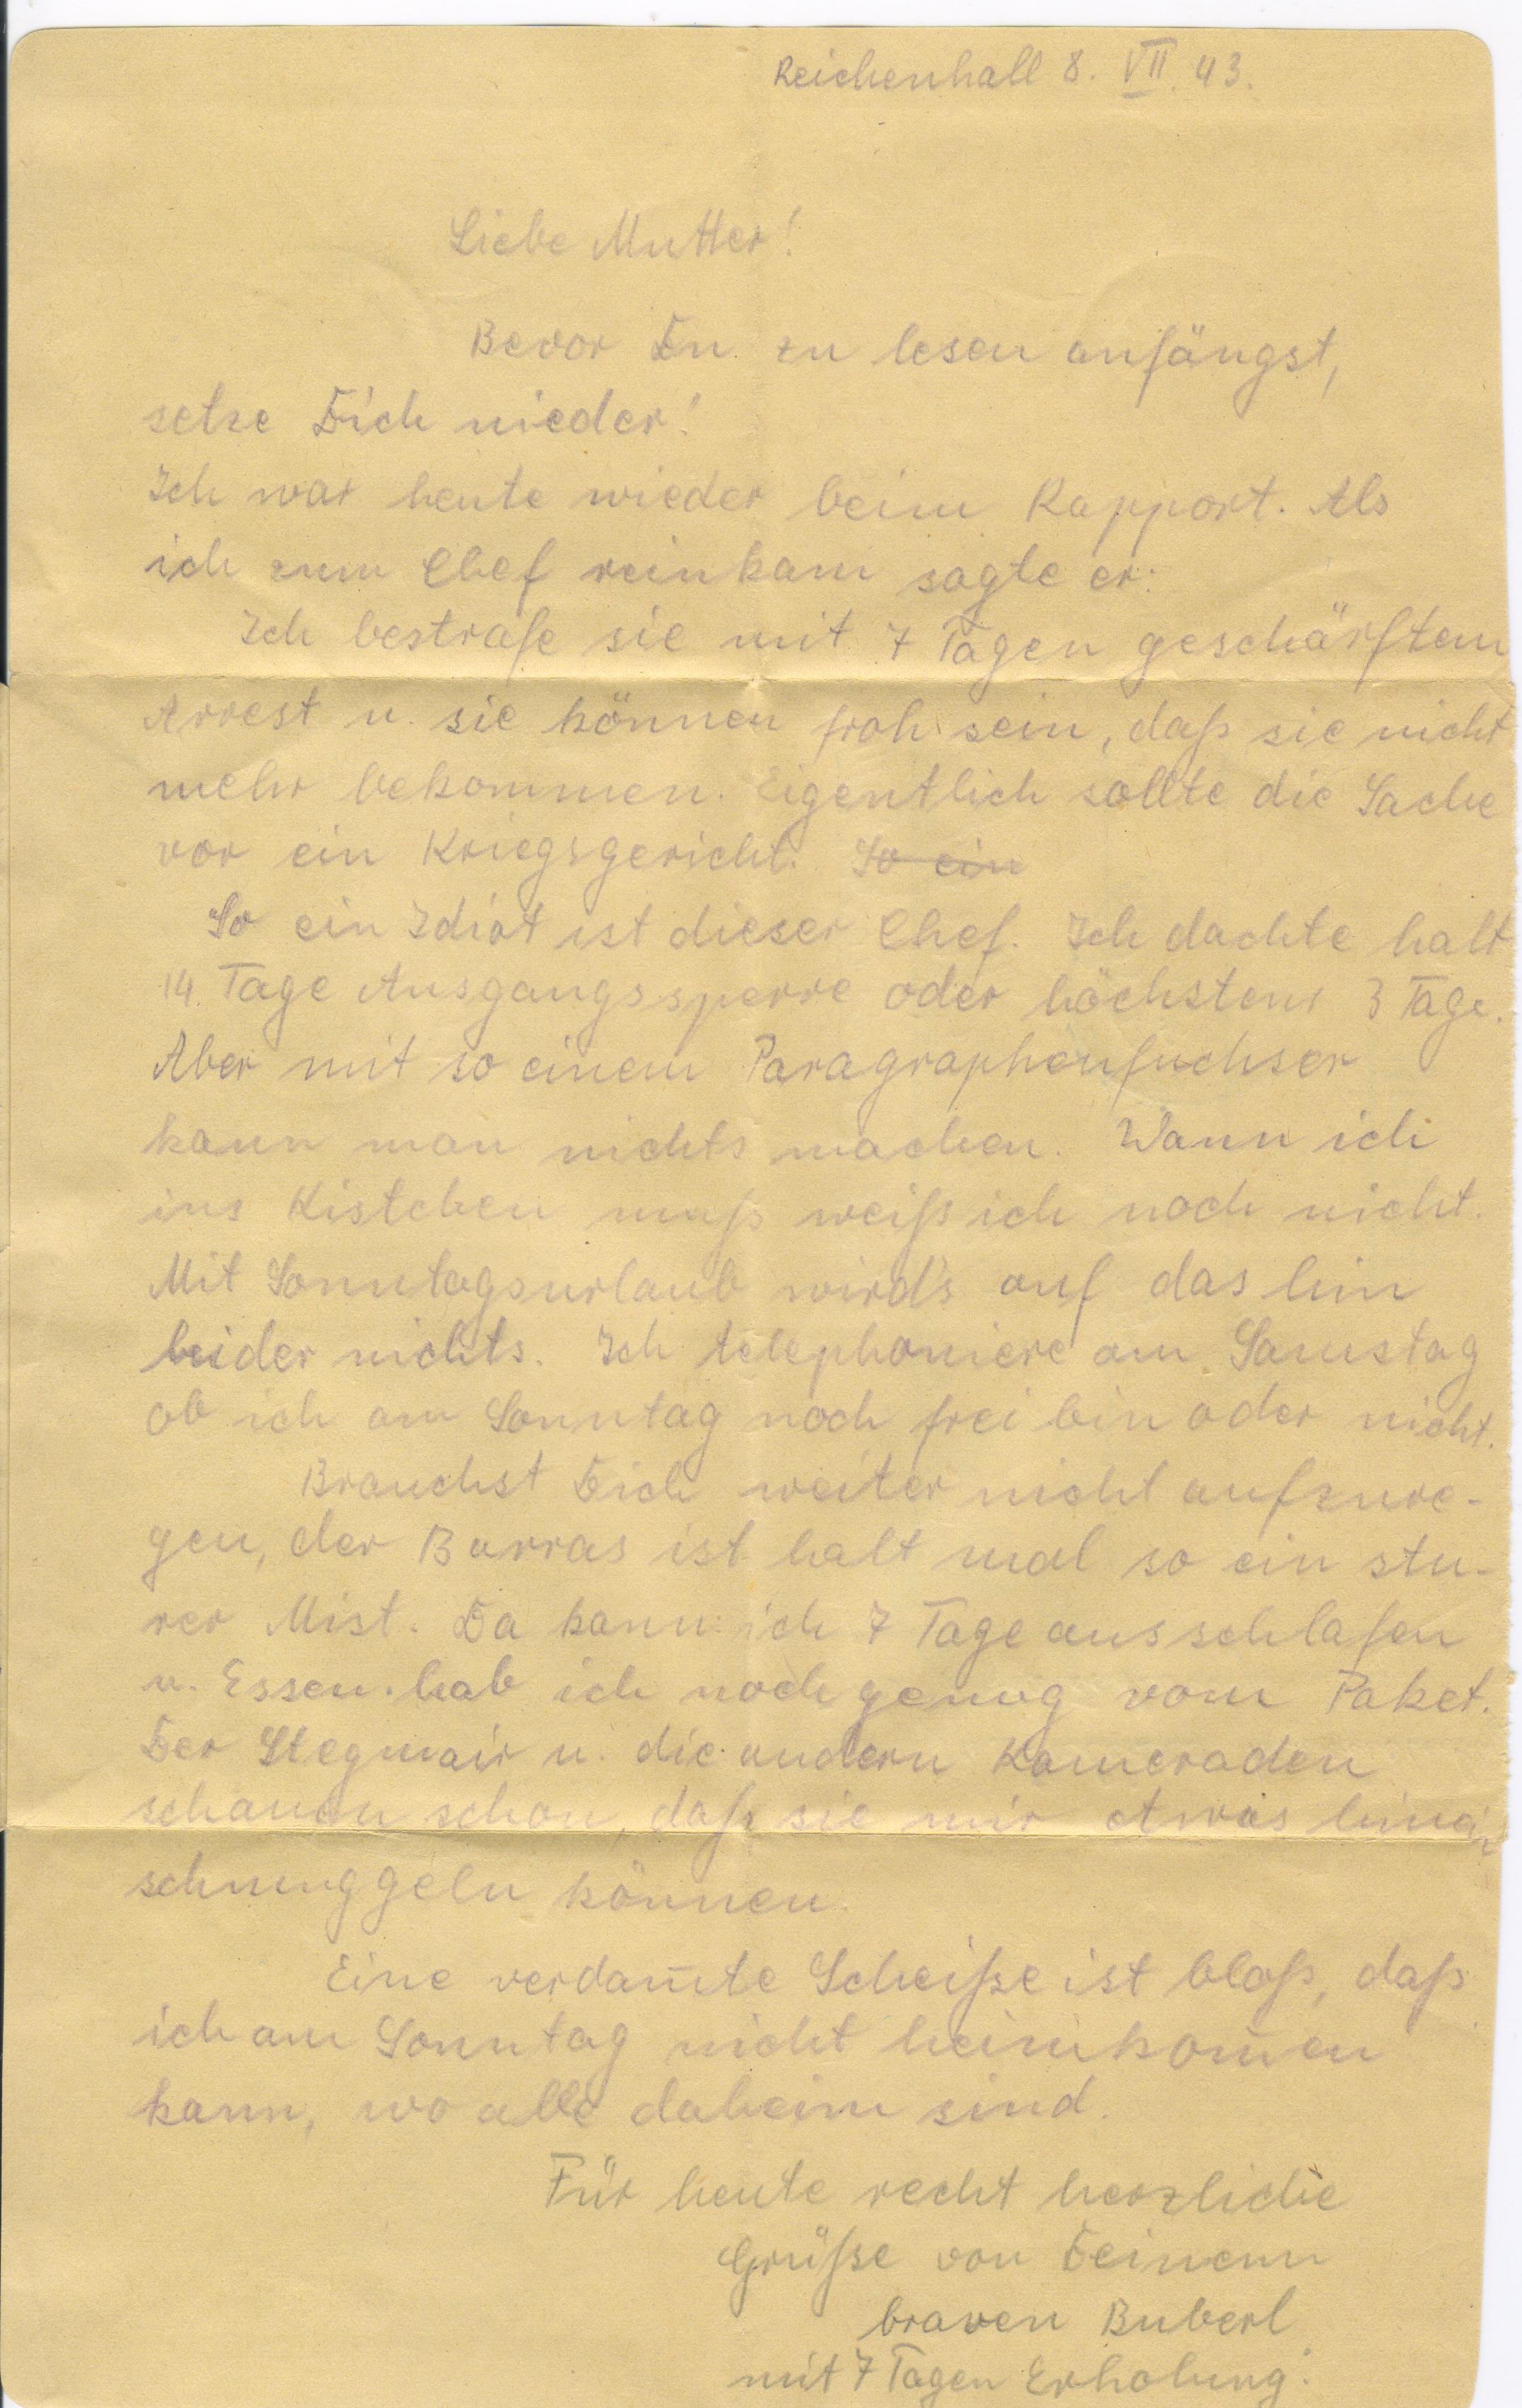 Reichenhall 8. VII. 43.
Liebe Mutter!
Bevor Du zu lesen anfängst,
setze Dich nieder!
Ich war heute wieder beim Rapport. Als
ich zum Chef reinkam sagte er:
Ich bestrafe sie mit 7 Tagen geschärftem
Arrest u. sie können froh sein, daß sie nicht
mehr bekommen. Eigentlich sollte die Sache
vor ein Kriegsgericht. So ein
So ein Idiot ist dieser Chef. Ich dachte halt
14 Tage Ausgangssperre oder höchstens 3 Tage.
Aber mit so einem Paragraphenfuchser
kann man nichts machen. Wann ich
ins Kistchen muß weiß ich noch nicht.
Mit Sonntagsurlaub wird's auf das hin
leider nichts. Ich telephoniere am Samstag
ob ich am Sonntag noch frei bin oder nicht.
Brauchst Dich weiter nicht aufzure-
gen, der Barras ist halt mal so ein stu-
rer Mist. Da kann ich 7 Tage ausschlafen
u. Essen hab ich noch genug vom Paket.
Der Stegmair u. die andern Kameraden
schauen schon, daß sie mir etwas hinein
schmuggeln können.
Eine verdam̄te Scheiße ist bloß, daß
ich am Sonntag nicht heimkom̄en
kann, wo alle daheim sind.
Für heute recht herzliche
Grüße von Deinem
braven Buberl
mit 7 Tagen Erholung.